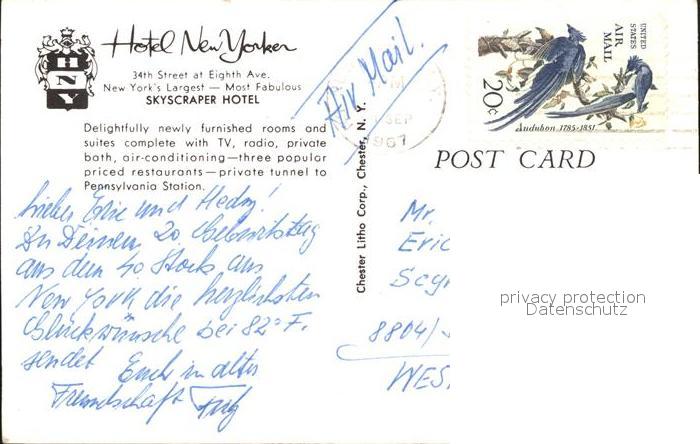 Hotel New Yorker
34th Street at Eighth Ave.
New York's Largest — Most Fabulous
SKYSCRAPER HOTEL
HNY
Delightfully newly furnished rooms and
suites complete with TV, radio, private
bath, air-conditioning—three popular
priced restaurants—private tunnel to
Pennsylvania Station.
Lieber Eric und Hedy!
Zu Deinem 20. Geburtstag
aus dem 40. Stock aus
New York die herzlichsten
Glückwünsche bei 82° F.
sendet Euch in alter
Freundschaft Fritz
Chester Litho Corp., Chester, N. Y.
Air Mail.
SEP
1967
UNITED
STATES
AIR
MAIL
20c
Audubon 1785-1851
POST CARD
Mr.
Eric
8804/
WES
privacy protection
Datenschutz